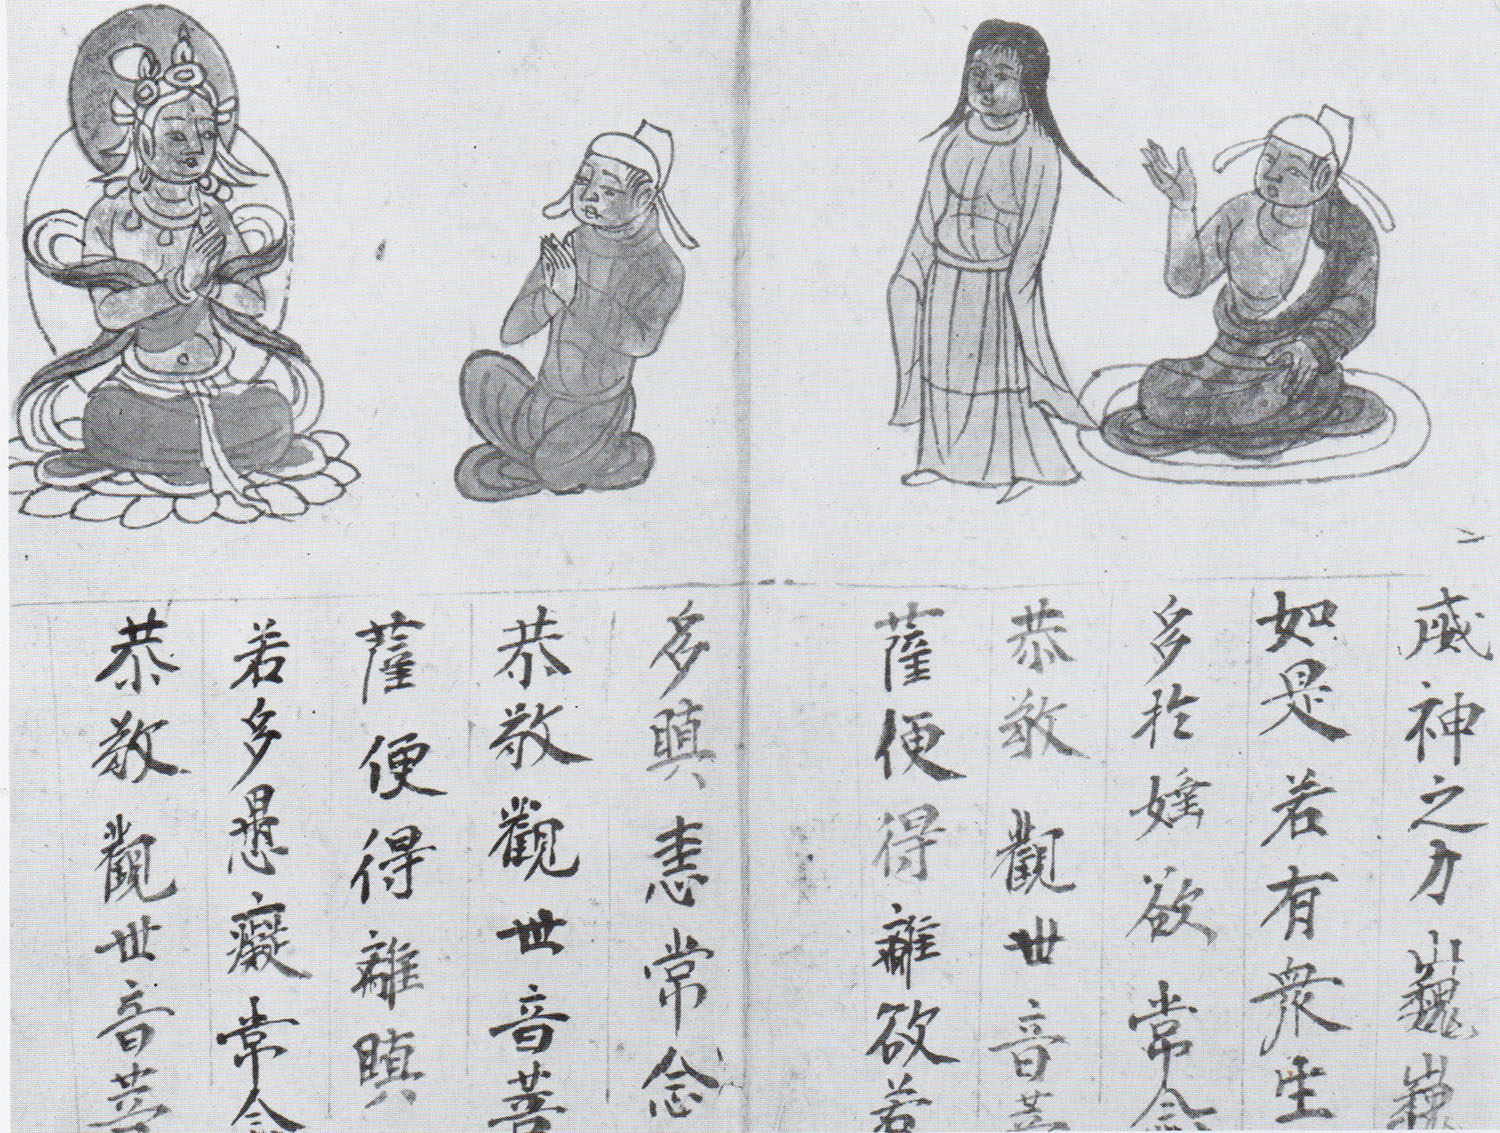 威神之力巍巍
如是若有衆生
多扵婬欲常念
恭敬觀世音菩
薩便得離欲若
多瞋恚常念
恭敬觀世音菩
薩便得離瞋
若多愚癡常念
恭敬觀世音菩